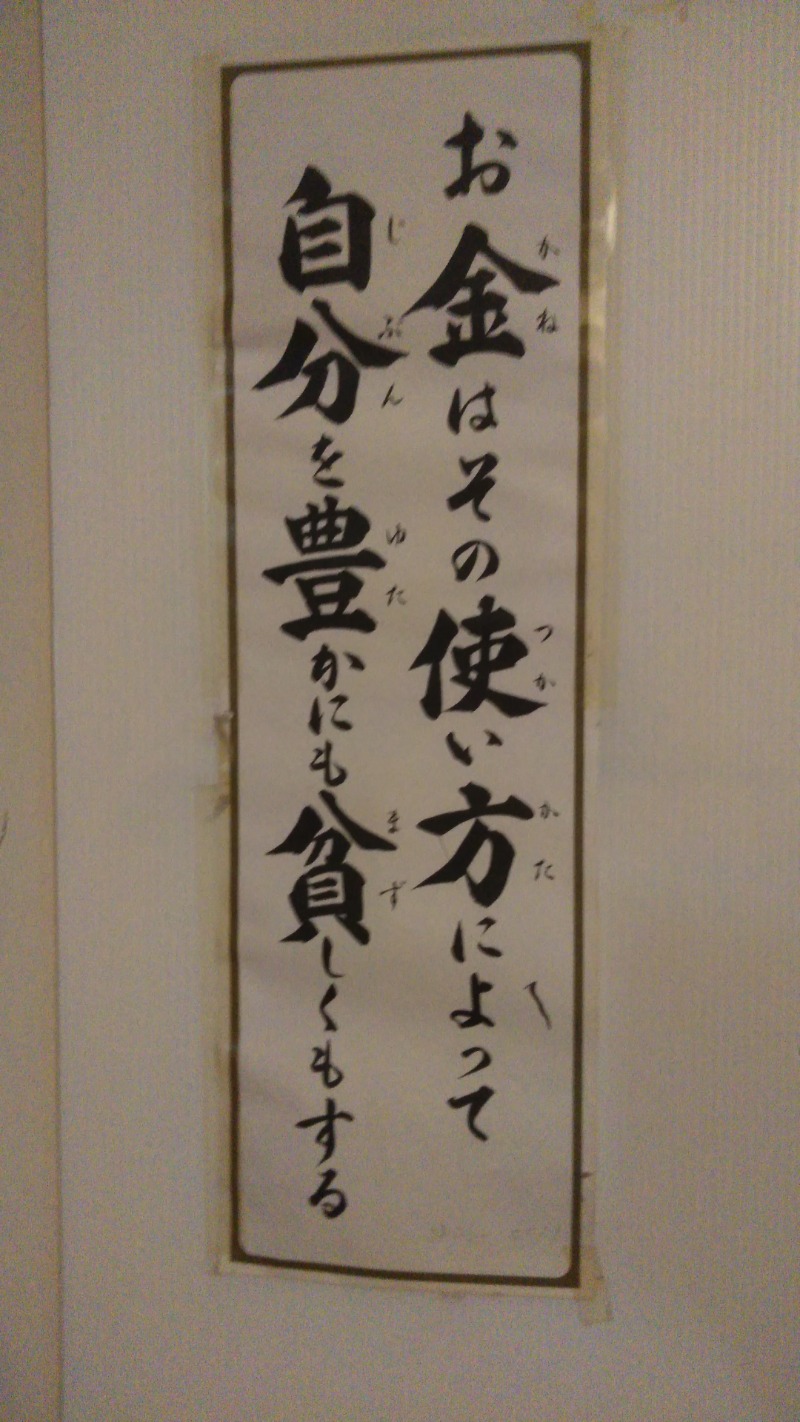 お金はその使い方によって
自分を豊かにも貧しくもする
かね
つか
かた
じぶん
ゆた
まず